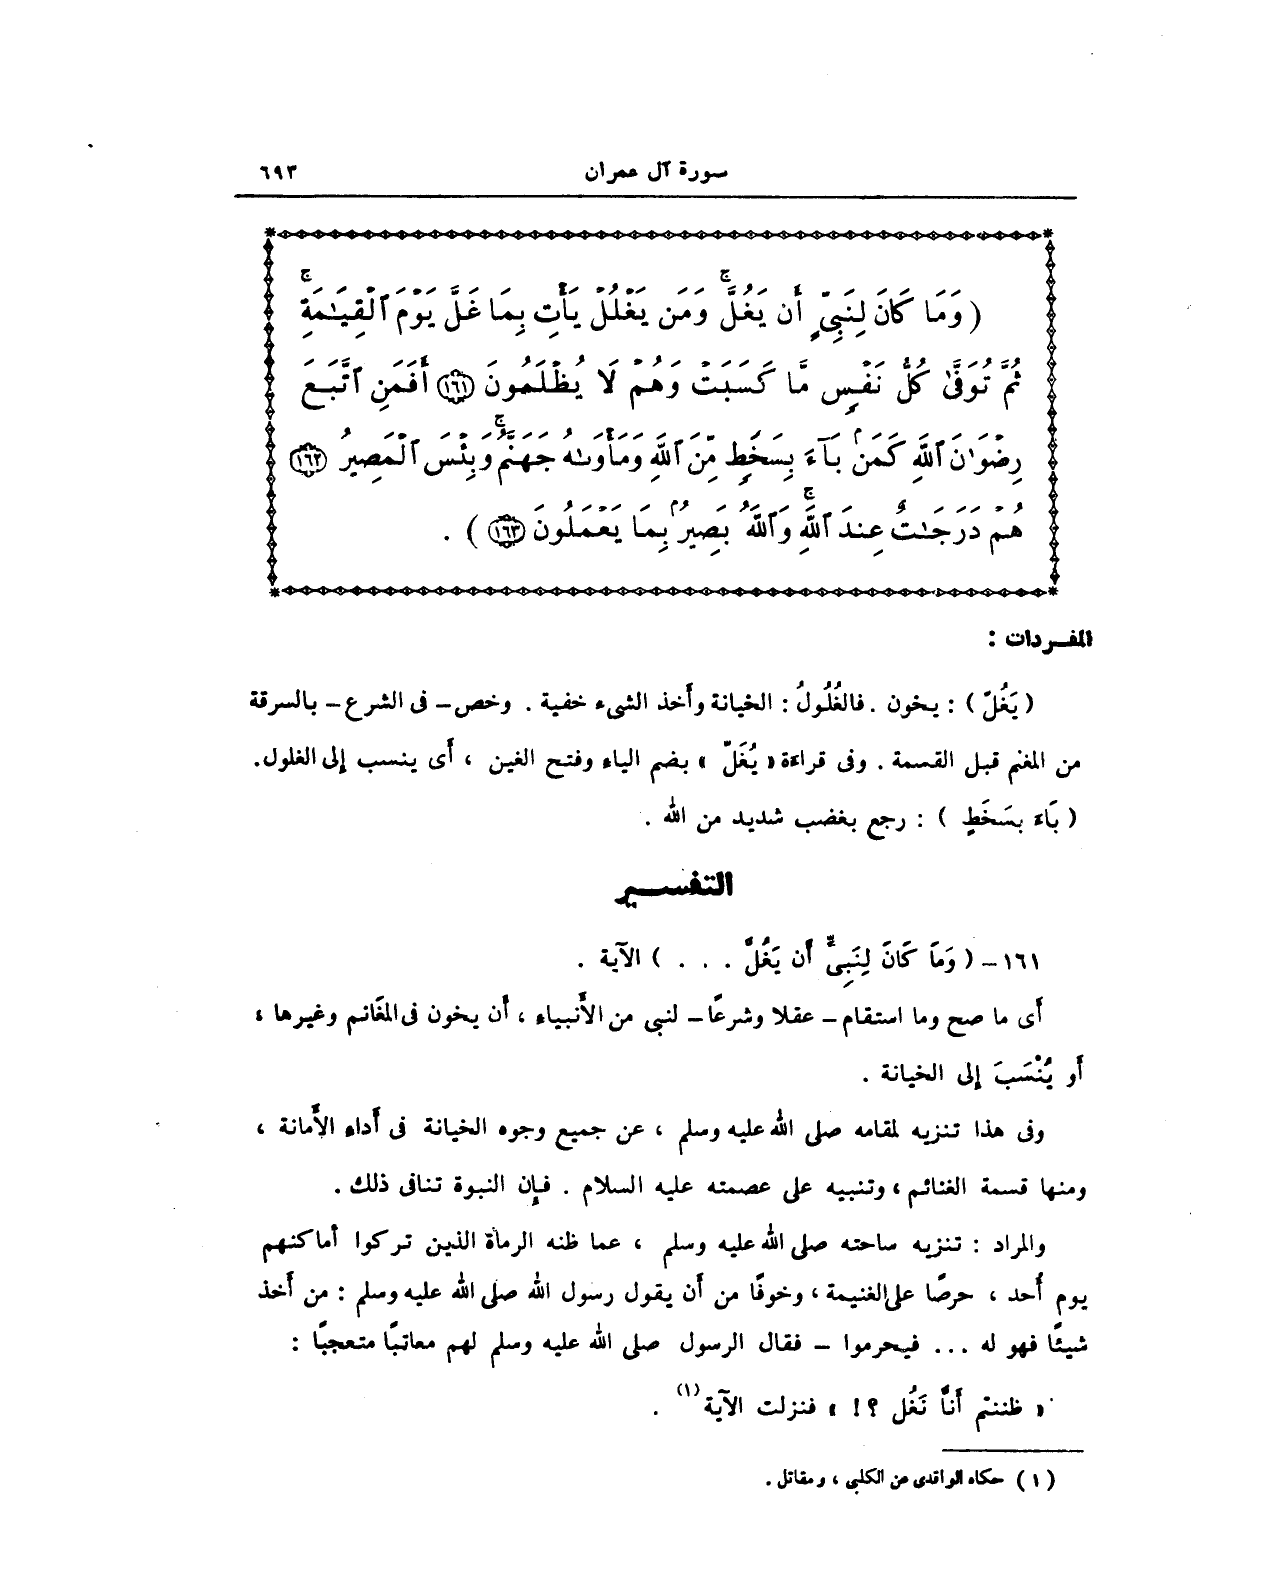 سورة آل عمران ٦٩٣
( وَمَا كَانَ لِنَبِيٍّ أَن يَغُلَّ ۚ وَمَن يَغْلُلْ يَأْتِ بِمَا غَلَّ يَوْمَ ٱلْقِيَـٰمَةِ ۚ
ثُمَّ تُوَفَّىٰ كُلُّ نَفْسٍ مَّا كَسَبَتْ وَهُمْ لَا يُظْلَمُونَ ﴿١٦١﴾ أَفَمَنِ ٱتَّبَعَ
رِضْوَٰنَ ٱللَّهِ كَمَنۢ بَآءَ بِسَخَطٍ مِّنَ ٱللَّهِ وَمَأْوَىٰهُ جَهَنَّمُ ۚ وَبِئْسَ ٱلْمَصِيرُ ﴿١٦٢﴾
هُمْ دَرَجَـٰتٌ عِندَ ٱللَّهِ ۗ وَٱللَّهُ بَصِيرٌۢ بِمَا يَعْمَلُونَ ﴿١٦٣﴾ ) .
المفـردات :
( يَغُلّ ) : يخون . فالغُلُولُ : الخيانة وأخذ الشىء خفية . وخص – فى الشرع – بالسرقة
من المغنم قبل القسمة . وفى قراءة « يُغَلّ » بضم الياء وفتح الغين ، أى ينسب إلى الغلول.
( بَاءَ بِسَخَطٍ ) : رجع بغضب شديد من الله .
التفسـير
١٦١ – ( وَمَا كَانَ لِنَبِيٍّ أَن يَغُلَّ . . . ) الآية .
أى ما صح وما استقام – عقلا وشرعًا – لنبى من الأنبياء ، أن يخون فى المغَانم وغيرها ،
أو يُنْسَبَ إلى الخيانة .
وفى هذا تنزيه لمقامه صلى الله عليه وسلم ، عن جميع وجوه الخيانة فى أداء الأمانة ،
ومنها قسمة الغنائم ، وتنبيه على عصمته عليه السلام . فإن النبوة تنافى ذلك .
والمراد : تنزيه ساحته صلى الله عليه وسلم ، عما ظنه الرماة الذين تركوا أماكنهم
يوم أُحد ، حرصًا على الغنيمة ، وخوفًا من أن يقول رسول الله صلى الله عليه وسلم : من أخذ
شيئًا فهو له ... فيحرموا – فقال الرسول صلى الله عليه وسلم لهم معاتبًا متعجبًا :
« ظننتم أَنَّا نَغُل ؟! » فنزلت الآية (١) .
(١) حكاه الواقدى عن الكلبى ، ومقاتل .